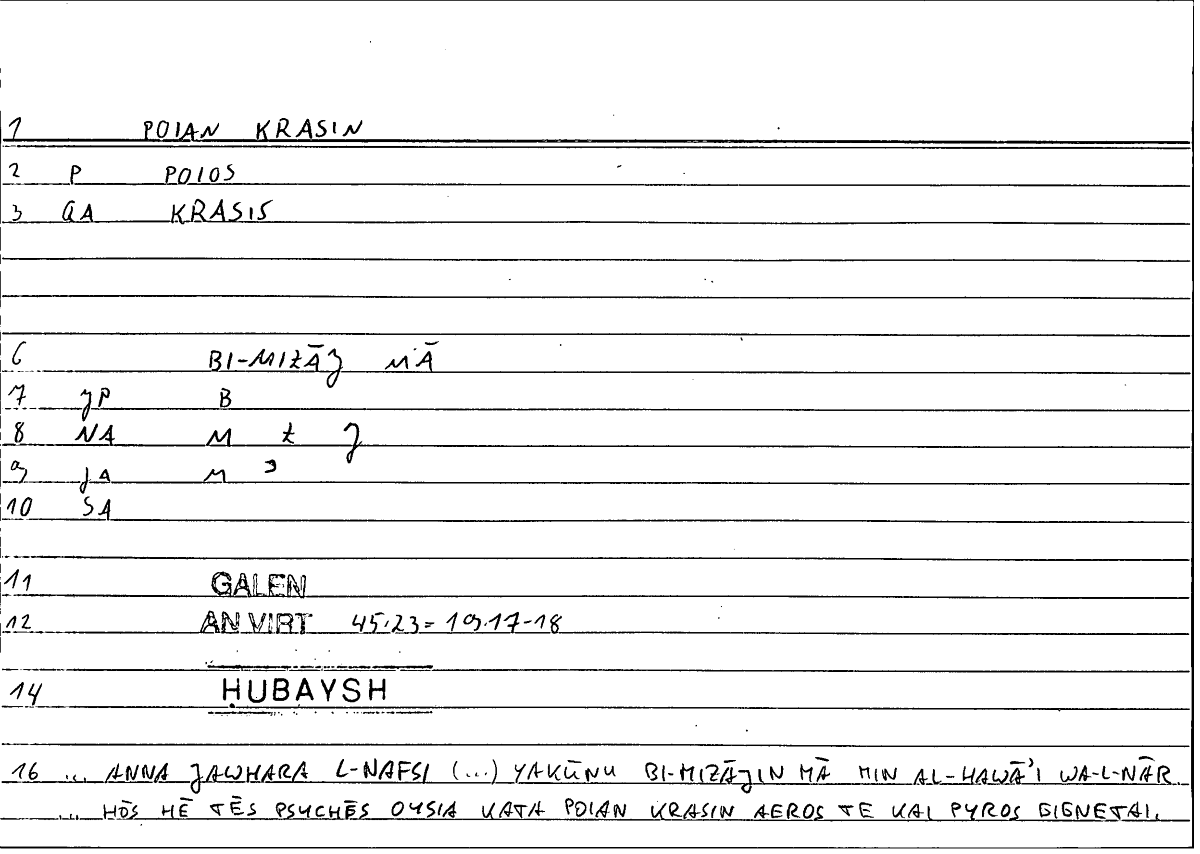 1 POIAN KRASIN
2 P POIOS
3 QA KRASIS
6 BI-MIZĀJ MĀ
7 JP B
8 NA M Z J
9 JA M ʾ
10 SA
11 GALEN
12 AN VIRT 45.23 = 19.17-18
14 ḤUBAYSH
16 ... ANNA JAWHARA L-NAFSI (...) YAKŪNU BI-MIZĀJIN MĀ MIN AL-HAWĀʾI WA-L-NĀR.
... HŌS HĒ TĒS PSYCHĒS OYSIA KATA POIAN KRASIN AEROS TE KAI PYROS GIGNETAI.